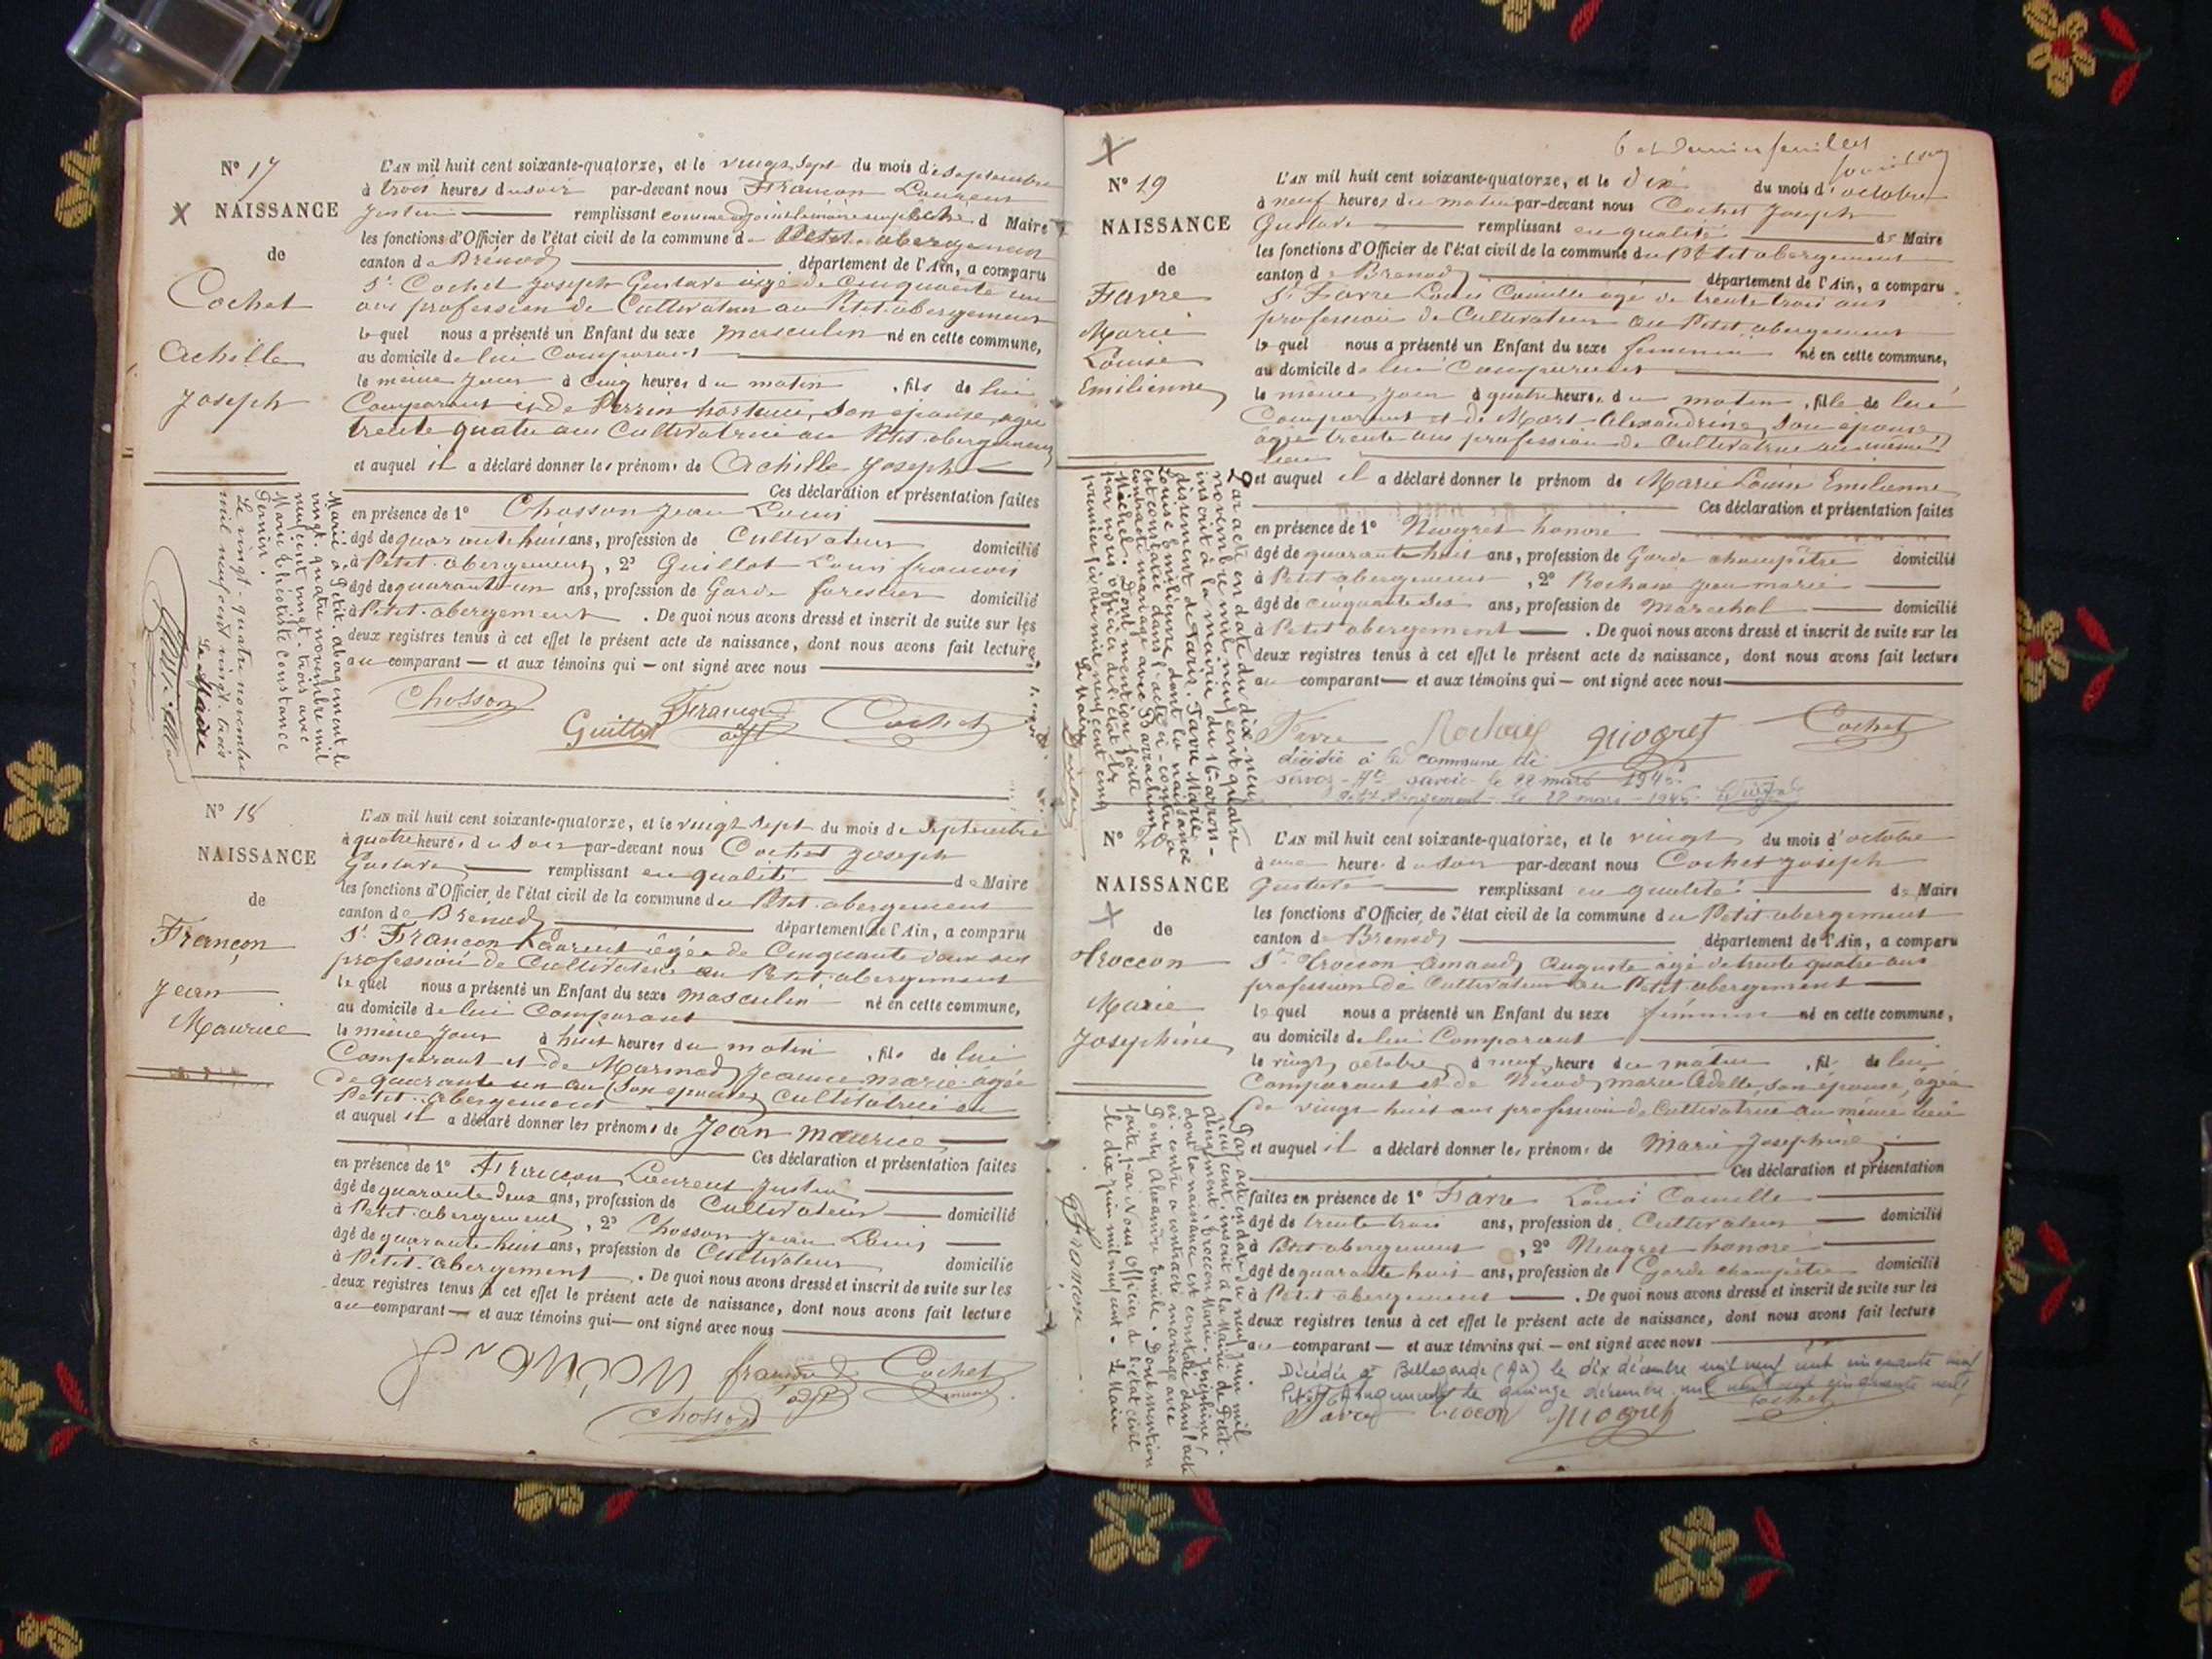 N° 17
NAISSANCE
de
Cochet
Achille
Joseph
L'AN mil huit cent soixante-quatorze, et le vingt sept du mois de septembre
à trois heures du soir par-devant nous Françon Laurent
Justin remplissant comme adjoint le maire empêché d Maire
les fonctions d'Officier de l'état civil de la commune du Petit abergement
canton de Brénod département de l'Ain, a comparu
Sr Cochet Joseph Gustave âgé de cinquante un
ans profession de Cultivateur au Petit abergement
lequel nous a présenté un Enfant du sexe masculin né en cette commune,
au domicile de lui Comparant
le même jour à cinq heures du matin, fils de lui
Comparant et de Perrin hortense, son épouse, agée
trente quatre ans Cultivatrice au Petit abergement
et auquel il a déclaré donner les prénoms de Achille Joseph
Ces déclaration et présentation faites
en présence de 1° Chosson Jean Louis
âgé de quarante huit ans, profession de Cultivateur domicilié
à Petit abergement, 2° Guillot Louis francois
âgé de quarante un ans, profession de Garde forestier domicilié
à Petit abergement. De quoi nous avons dressé et inscrit de suite sur les
deux registres tenus à cet effet le présent acte de naissance, dont nous avons fait lecture
au comparant et aux témoins qui ont signé avec nous
Chosson Guillot Françon adjt Cochet
Marié à Petit-abergement le
vingt-quatre novembre mil
neuf cent vingt-trois avec
Marie Théotiste Constance
Pernier.
Le vingt-quatre novembre
mil neuf cent vingt-trois
Le Maire
N° 18
NAISSANCE
de
Françon
Jean
Maurice
L'AN mil huit cent soixante-quatorze, et le vingt sept du mois de septembre
à quatre heures du soir par-devant nous Cochet Joseph
Gustave remplissant en qualité de Maire
les fonctions d'Officier de l'état civil de la commune du Petit abergement
canton de Brénod département de l'Ain, a comparu
Sr Françon Laurent âgée de Cinquante deux ans
profession de Cultivateur au Petit abergement
lequel nous a présenté un Enfant du sexe masculin né en cette commune,
au domicile de lui Comparant
le même jour à huit heures du matin, fils de lui
Comparant et de Marmod Jeanne marie âgée
de quarante un an (son épouse) cultivatrice au
Petit abergement
et auquel il a déclaré donner les prénoms de Jean maurice
Ces déclaration et présentation faites
en présence de 1° Françon Laurent Justin
âgé de quarante deux ans, profession de Cultivateur domicilié
à Petit abergement, 2° Chosson Jean Louis
âgé de quarante huit ans, profession de Cultivateur domicilié
à Petit abergement. De quoi nous avons dressé et inscrit de suite sur les
deux registres tenus à cet effet le présent acte de naissance, dont nous avons fait lecture
au comparant et aux témoins qui ont signé avec nous
françon adjt Cochet maire
Chosson
6 et dernier feuillet
N° 19
NAISSANCE
de
Favre
Marie
Louise
Emilienne
L'AN mil huit cent soixante-quatorze, et le dix du mois d'octobre
à neuf heures du matin par-devant nous Cochet Joseph
Gustave remplissant en qualité de Maire
les fonctions d'Officier de l'état civil de la commune du Petit abergement
canton de Brenod département de l'Ain, a comparu
Sr Favre Louis Camille âgé de trente trois ans
profession de Cultivateur au Petit abergement
lequel nous a présenté un Enfant du sexe féminin né en cette commune,
au domicile de lui Comparant
le même jour à quatre heures du matin, fille de lui
Comparant et de Mort Alexandrine, son épouse,
âgée trente ans profession de Cultivatrice au même
lieu
et auquel il a déclaré donner le prénom de Marie Louise Emilienne
Ces déclaration et présentation faites
en présence de 1° Niogret honoré
âgé de quarante huit ans, profession de Garde champêtre domicilié
à Petit abergement, 2° Rochaix Jean marie
âgé de cinquante six ans, profession de marechal domicilié
à Petit abergement. De quoi nous avons dressé et inscrit de suite sur les
deux registres tenus à cet effet le présent acte de naissance, dont nous avons fait lecture
au comparant et aux témoins qui ont signé avec nous
Favre Rochaix Niogret Cochet
décédée à la commune de
Servoz - Hte savoie le 22 mars 194
Petit Abergement le 28 mars 194
Par acte en date du dix-neuf
novembre mil neuf cent quatre
inscrit à la mairie du 16e arron-
dissement de Paris. Favre Marie
Louise Emilienne dont la naissance
est constatée dans l'acte ci-contre a
contracté mariage avec
Michel. Dont mention faite
par nous officier de l'état civil
premier février mil neuf cent cinq
Le maire
N° 20
NAISSANCE
de
Troccon
Marie
Josephine
L'AN mil huit cent soixante-quatorze, et le vingt du mois d'octobre
à une heure du soir par-devant nous Cochet Joseph
Gustave remplissant en qualité de Maire
les fonctions d'Officier de l'état civil de la commune du Petit abergement
canton de Brenod département de l'Ain, a comparu
Sr Troccon Amand Auguste âgé de trente quatre ans
profession de Cultivateur au Petit abergement
lequel nous a présenté un Enfant du sexe féminin né en cette commune,
au domicile de lui Comparant
le vingt octobre, à neuf heure du matin, fil de lui
Comparant et de Nicod marie Adelle, son épouse, âgée
de vingt huit ans profession de Cultivatrice au même lieu
et auquel il a déclaré donner les prénoms de Marie Josephine
Ces déclaration et présentation
faites en présence de 1° Favre Louis Camille
âgé de trente trois ans, profession de Cultivateur domicilié
à Petit abergement, 2° Niogret honoré
âgé de quarante huit ans, profession de Garde champêtre domicilié
à Petit abergement. De quoi nous avons dressé et inscrit de suite sur les
deux registres tenus à cet effet le présent acte de naissance, dont nous avons fait lecture
au comparant et aux témoins qui ont signé avec nous
Décédée à Bellegarde (Ain) le dix décembre mil neuf cent cinquante neuf
Petit Abergement le quinze décembre mil neuf cent cinquante neuf
Favre Trocon Niogret Cochet
Par acte en date du neuf juin mil
neuf cent, inscrit à la Mairie de Petit-
abergement, Troccon Marie-Joséphine
dont la naissance est constatée dans l'acte
ci-contre a contracté mariage avec
Alexandre Emile. Dont mention
faite par Nous Officier de l'état civil
le dix juin mil neuf cent. Le Maire
Françon